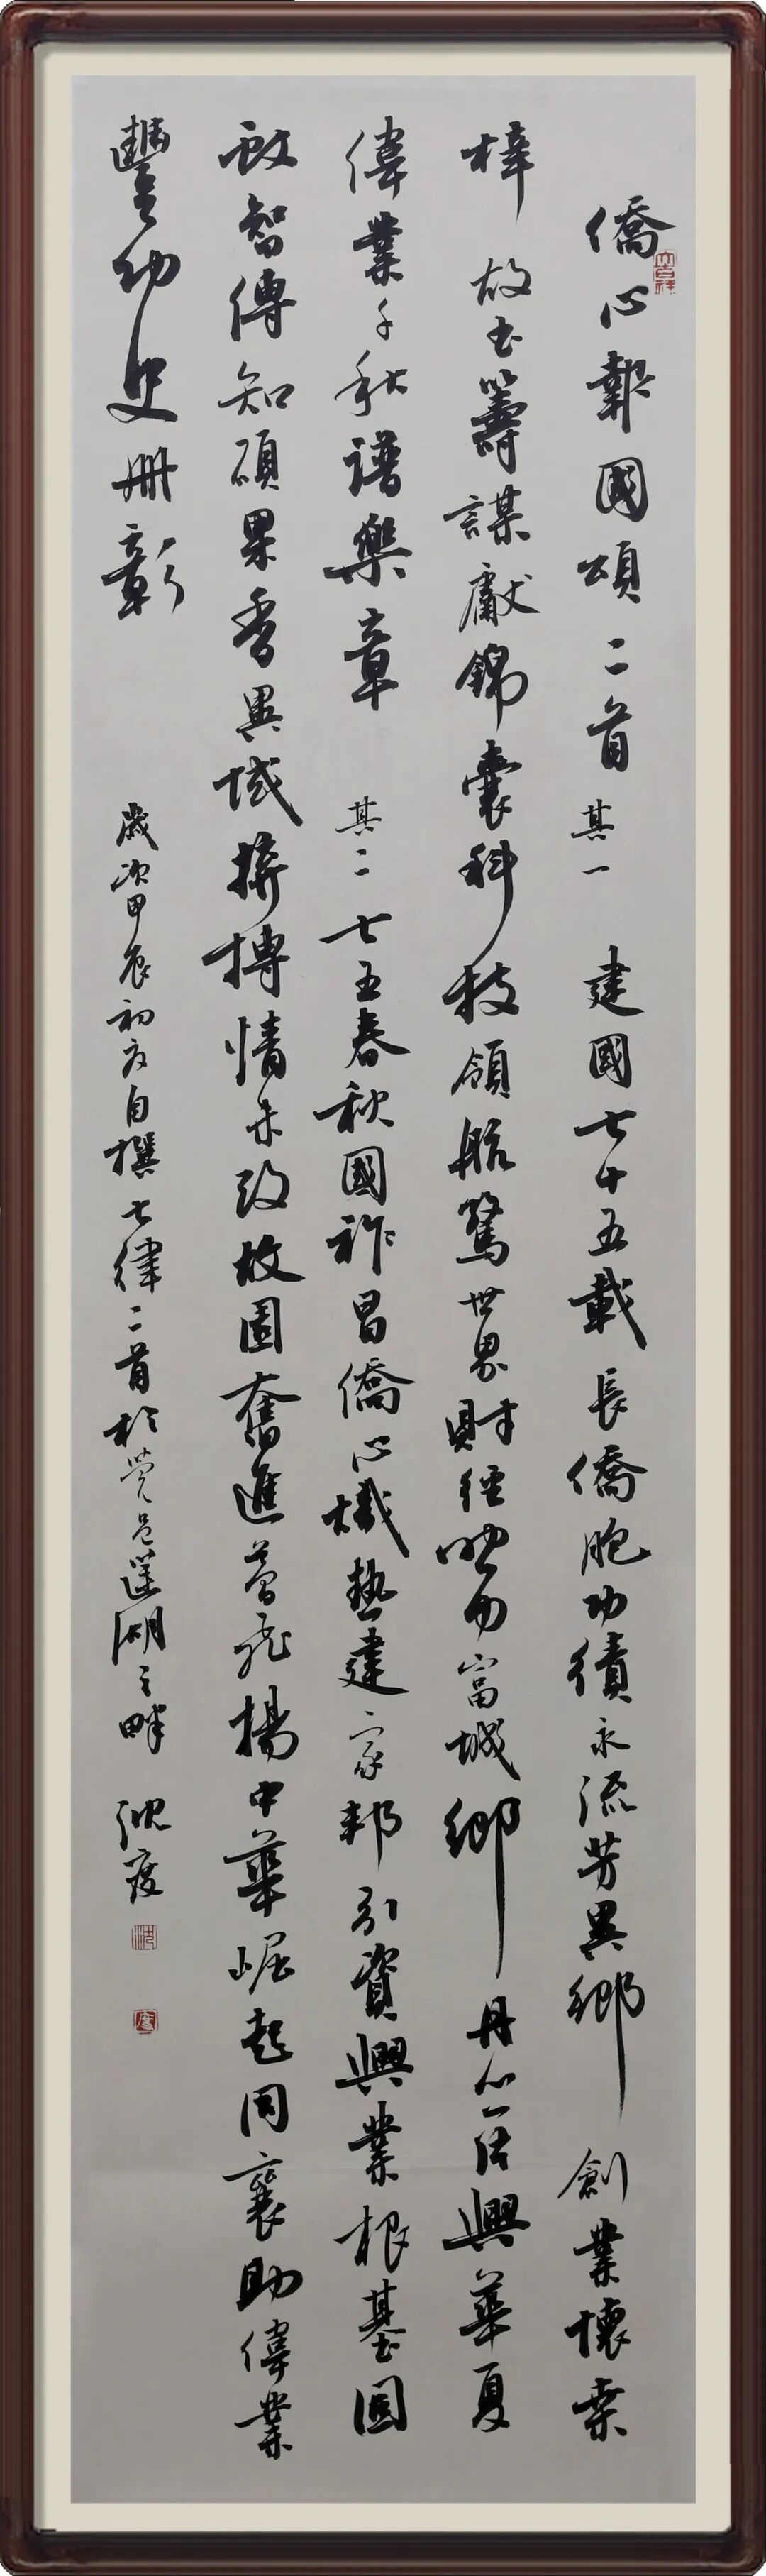 僑心報國頌二首 其一 建國七十五載長僑胞功績永流芳異鄉創業懷桑
梓故土籌謀獻錦囊科技領航驚世界財經助力富城鄉丹心興華夏
偉業千秋譜樂章 其二 七五春秋國祚昌僑心熾熱建家邦引資興業根基固
啟智傳知碩果香異域拼搏情未改故園奮進夢飛揚中華崛起同襄助偉業
豐功史冊彰
歲次甲辰初夏自撰七律二首於莞邑蓮湖之畔 沈度
大吉祥
沈
度